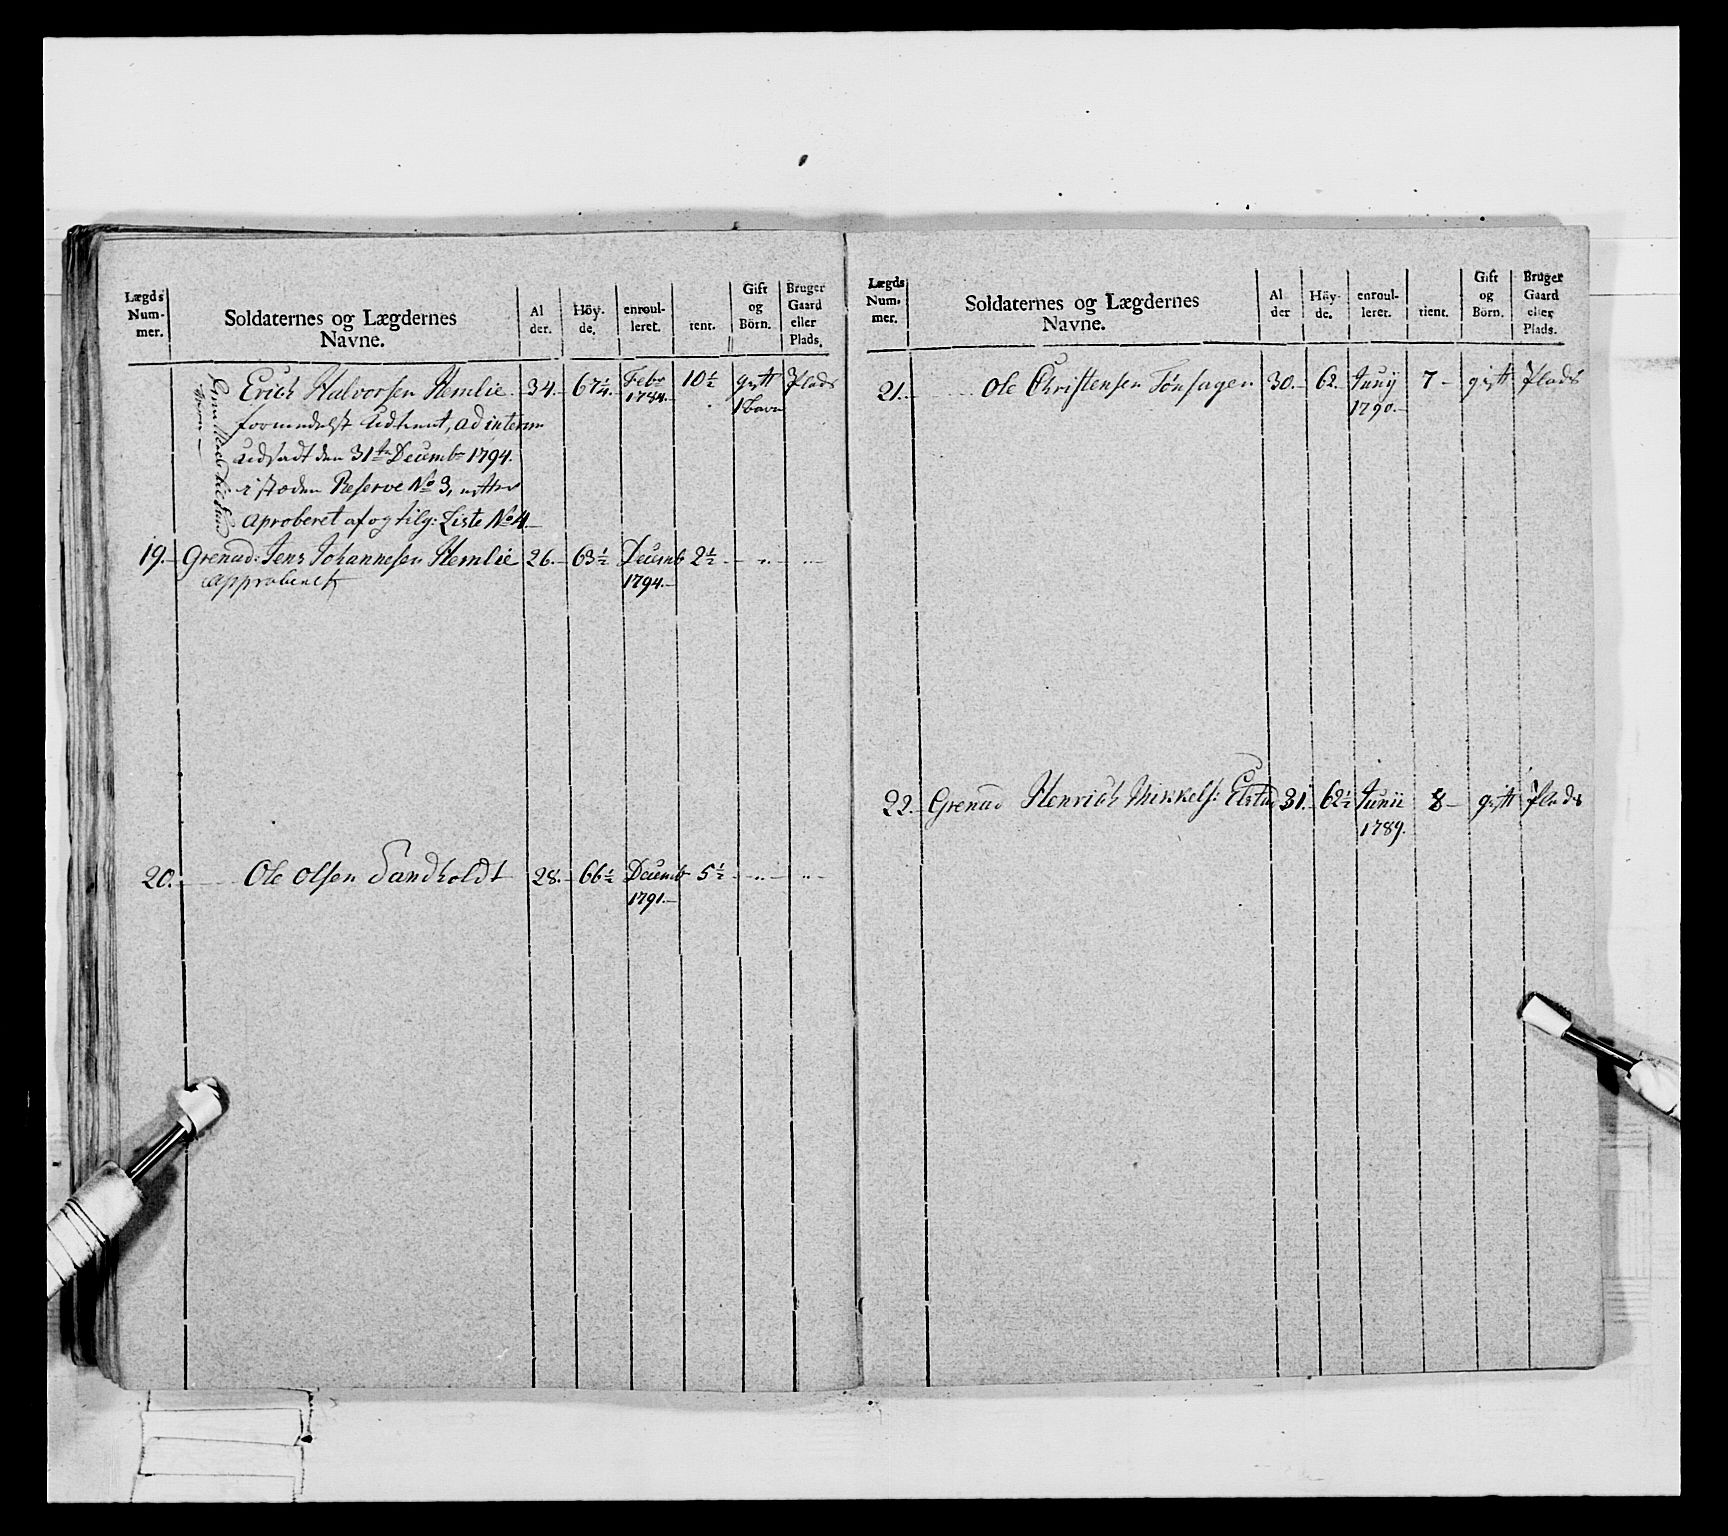 Lægds Num- mer. Soldaternes og Lægdernes Navne. Al der. Höy- de. enroul- leret. tient. Gift og Börn. Bruger Gaard eller Plads.
Erich Halvorsen Hemlie 34. 67¼. Febr 1784. 10½ gift 1 barn Plads
formedelst Udtient, ad interim
Udsadt den 31te Decembr 1794.
istæden Reserve No 3,
aproberet af og tilg: Liste No 4.
19. Grenad: Jens Johannesen Hemlie 26. 63½ Decemb 1794. 2½ - „ - „ -
approberet
20. Ole Olsen Sandholdt 28. 66½ Decemb 1791. 5½ - „ - „ -
Lægds Num- mer. Soldaternes og Lægdernes Navne. Al der Höy- de. enroul- leret. tient. Gift og Börn. Bruger Gaard eller Plads.
21. Ole Christensen Tønsager 30. 62. Junij 1790. 7 - gift Plads
22. Grenad Henrich Mikkels: 31. 62½ Junii 1789. 8 - gift Plads